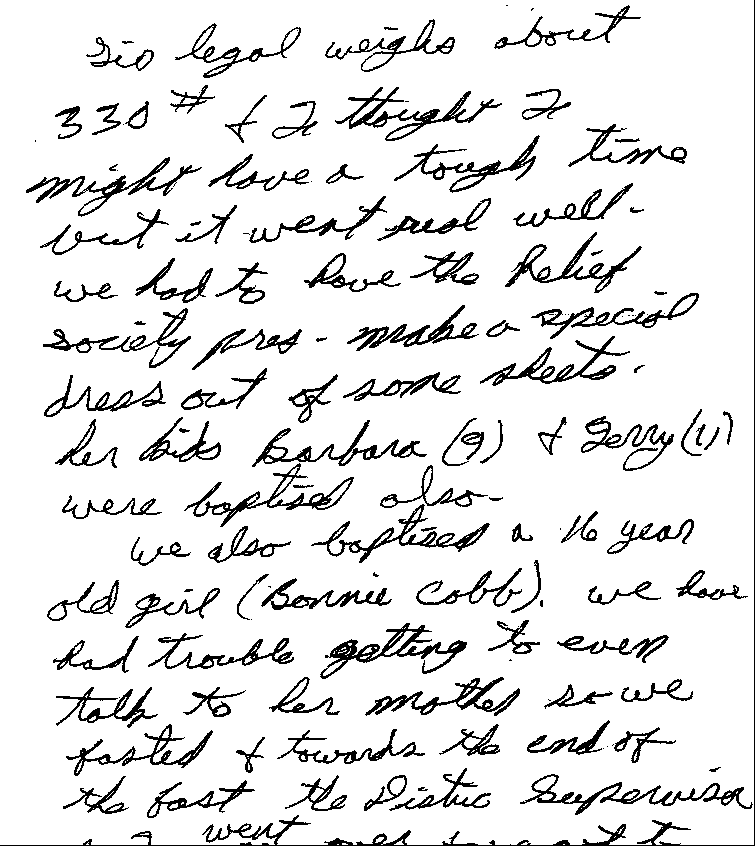 Sis legal weighs about
330 # & I thought I
might have a tough time
but it went real well.
we had to have the Relief
Society pres. make a special
dress out of some sheets.
her kids Barbara (9) & Gerry (11)
were baptised also.
we also baptised a 16 year
old girl (Bonnie Cobb). we have
had trouble getting to even
talk to her mother so we
fasted & towards the end of
the fast the Distric Supervisor
went over